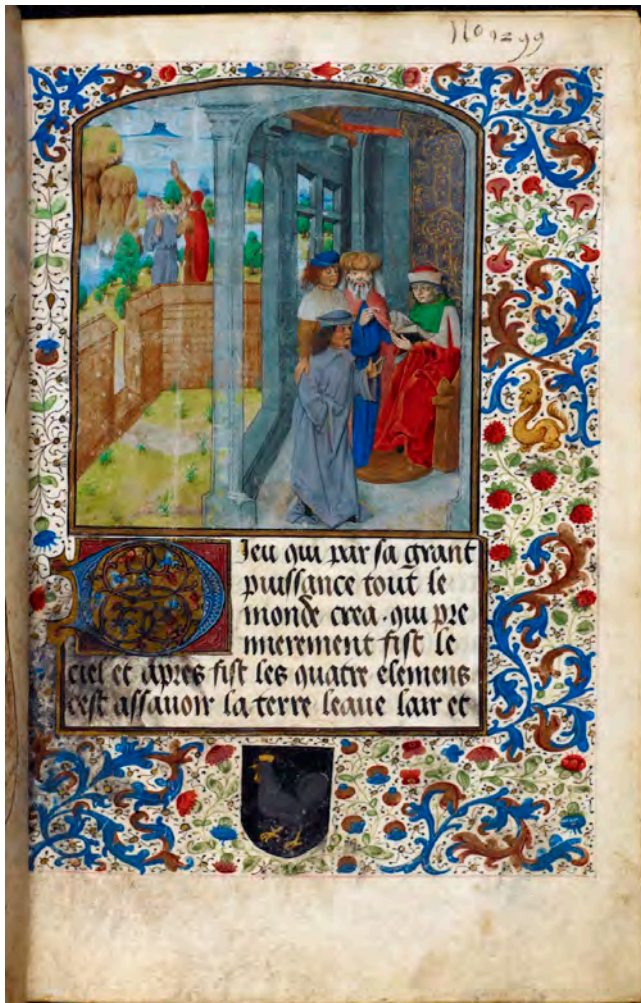 No 1299
Dieu qui par sa grant
puissance tout le
monde crea · qui pre
mierement fist le
ciel et apres fist les quatre elemens
cest assauoir la terre leaue lair et